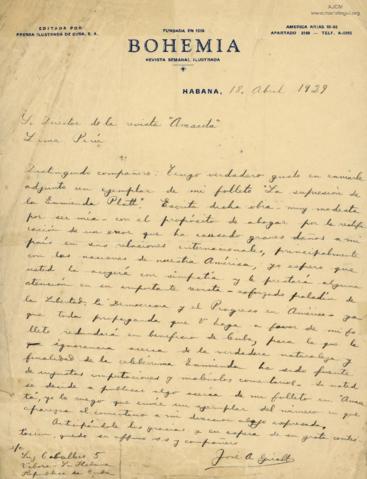 AJCM
www.mariategui.org
EDITADA POR
PRENSA ILUSTRADA DE CUBA, S. A.
FUNDADA EN 1910
BOHEMIA
REVISTA SEMANAL ILUSTRADA
AMERICA ARIAS
APARTADO TELF.
HABANA, 18 Abril 1929
Sr. Director de la revista "Amauta"
Lima Perú
Distinguido compañero: Tengo verdadero gusto en enviarle
adjunto un ejemplar de mi folleto "La supresión de
la Enmienda Platt". Escribí dicha obra - muy modesta
por ser mía - con el propósito de abogar por la rectifi-
cación de un error que ha causado graves daños a mi
país en sus relaciones internacionales, principalmente
con las naciones de nuestra América, y espero que
usted la acogerá con simpatía y le prestará alguna
atención en su importante revista - esforzado paladín de
la Libertad, la Democracia y el Progreso en América - ya
que toda propaganda que haga a favor de mi fo-
lleto redundará en beneficio de Cuba, para la que la
ignorancia acerca de la verdadera naturaleza y
finalidad de la celebérrima Enmienda ha sido fuente
de injustas imputaciones y comentarios. Si usted
se decide a publicar algo acerca de mi folleto en "Amau-
ta", yo le ruego que envíe un ejemplar del número en que
aparezca el comentario a mi dirección abajo expresada.
Anticipándole las gracias y en espera de su grata contes-
tación, quedo su affmo. s.s. y compañero
José A.
s/c
Luz Caballero 5
Víbora - La Habana
República de Cuba